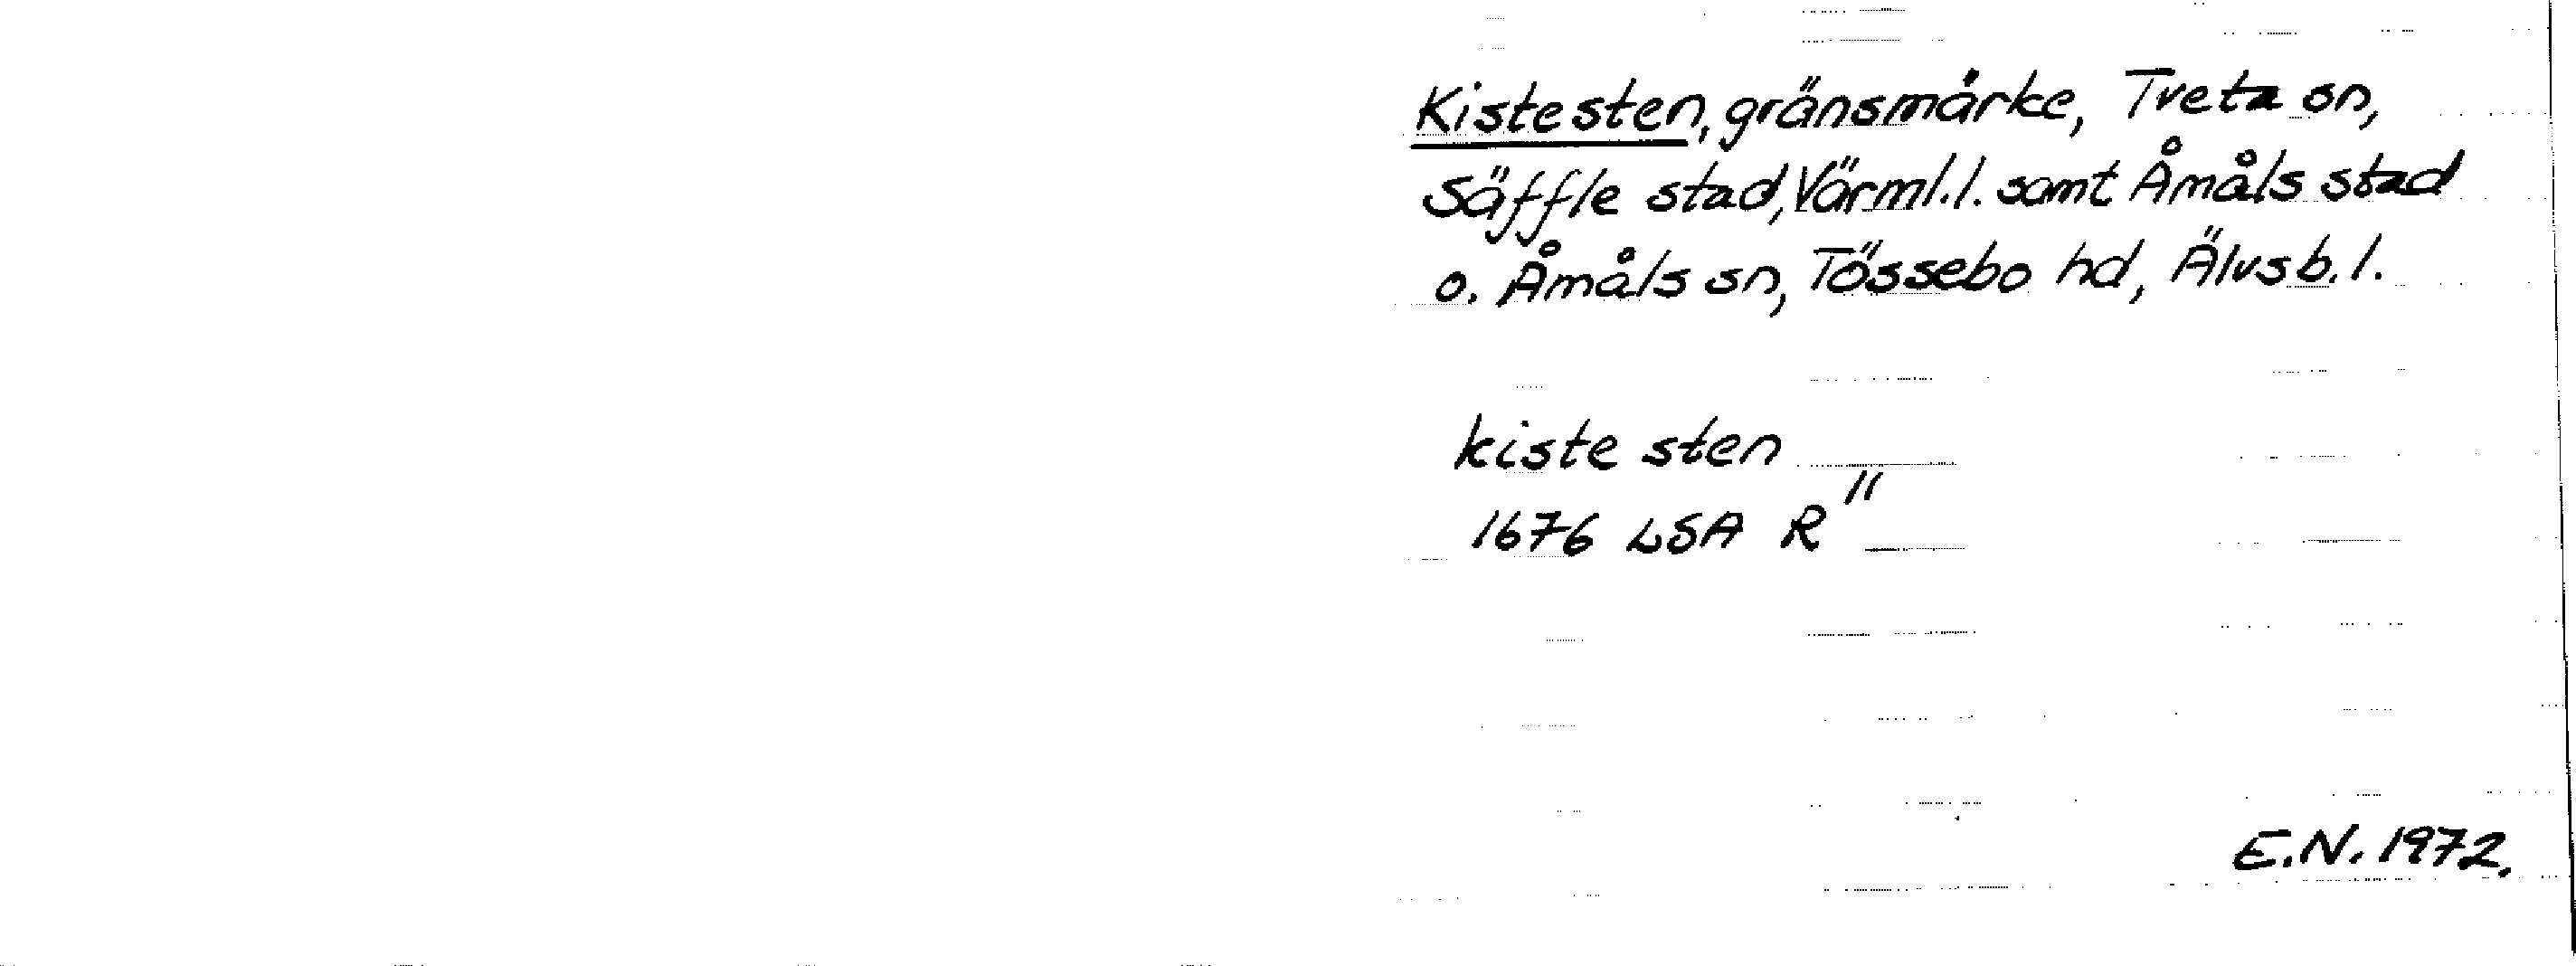 Kistesten, gränsmärke, Tveta sn,
Säffle stad, Värml.l. samt Åmåls stad
o. Åmåls sn, Tössebo hd, Älvsb.l.
kiste sten
1676 LSA R"
E.N. 1972.